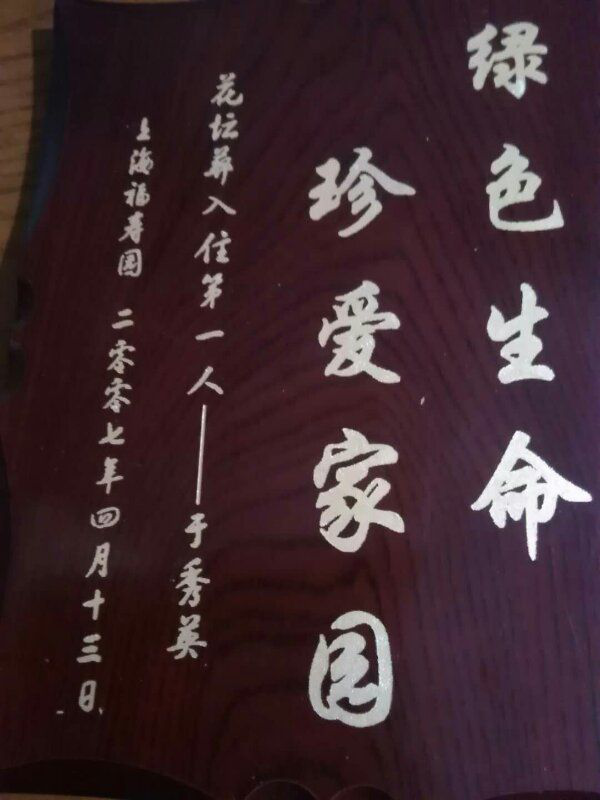 绿色生命
珍爱家园
花坛葬入住第一人——于秀英
上海福寿园 二零零七年四月十三日